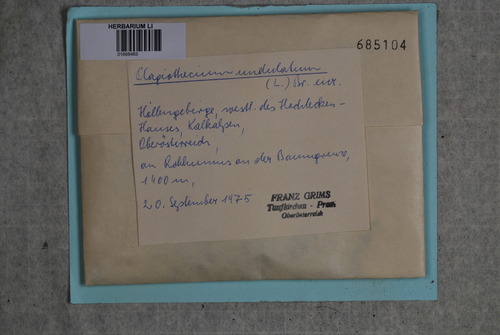 HERBARIUM LI
685104
Plagiothecium undulatum
(L.) Br. eur.
Höllengebirge, westl. des Hochlecken-
Hauses, Kalkalpen,
Oberösterreich,
am Rohhumus an der Baumgrenze,
1400 m,
20. September 1975
FRANZ GRIMS
Taufkirchen - Pram
Oberösterreich